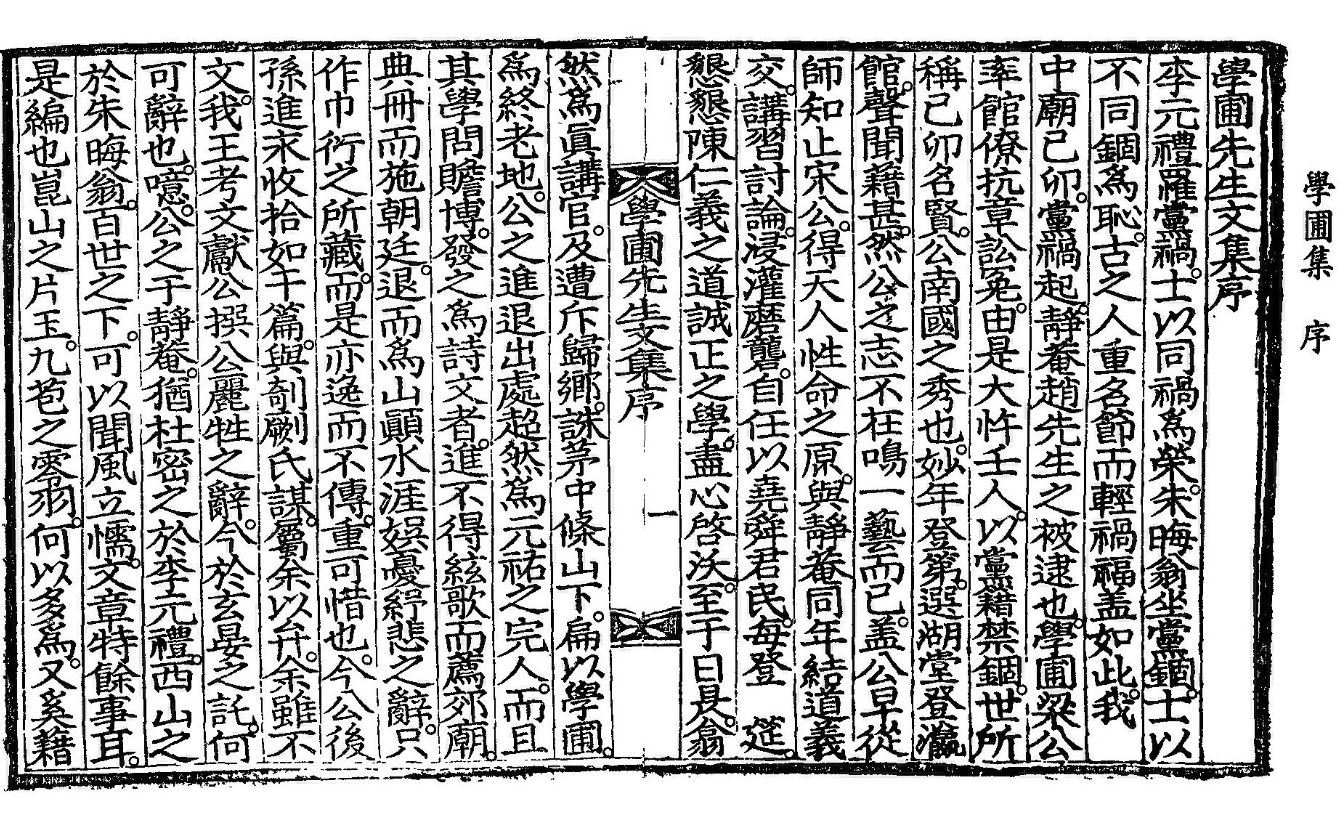 學圃集 序
學圃先生文集序
李元禮罹黨禍。士以同禍爲榮。朱晦翁坐黨錮。士以
不同錮爲恥。古之人重名節而輕禍福盖如此。我
中廟己卯。黨禍起。靜菴趙先生之被逮也。學圃梁公
率館僚抗章訟寃。由是大忤壬人。以黨籍禁錮。世所
稱己卯名賢。公南國之秀也。妙年登第。選湖堂登瀛
館。聲聞籍甚。然公之志不在鳴一藝而已。盖公早從
師知止宋公。得天人性命之原。與靜菴同年結道義
交。講習討論。浸灌磨礱。自任以堯舜君民。每登 筵。
懇懇陳仁義之道誠正之學。盡心啓沃。至于日昃。翕
學圃先生文集序 一
然爲眞講官。及遭斥歸鄕。誅茅中條山下。扁以學圃。
爲終老地。公之進退出處超然爲元祐之完人。而且
其學問贍博。發之爲詩文者。進不得絃歌而薦郊廟。
典冊而施朝廷。退而爲山顚水涯娛憂紓悲之辭。只
作巾衍之所藏。而是亦逸而不傳。重可惜也。今公後
孫進永收拾如干篇。與剞劂氏謀。屬余以弁。余雖不
文。我王考文獻公撰公麗牲之辭。今於玄晏之託。何
可辭也。噫。公之于靜菴。猶杜密之於李元禮。西山之
於朱晦翁。百世之下。可以聞風立懦。文章特餘事耳。
是編也崑山之片玉。九苞之零羽。何以多爲。又奚藉